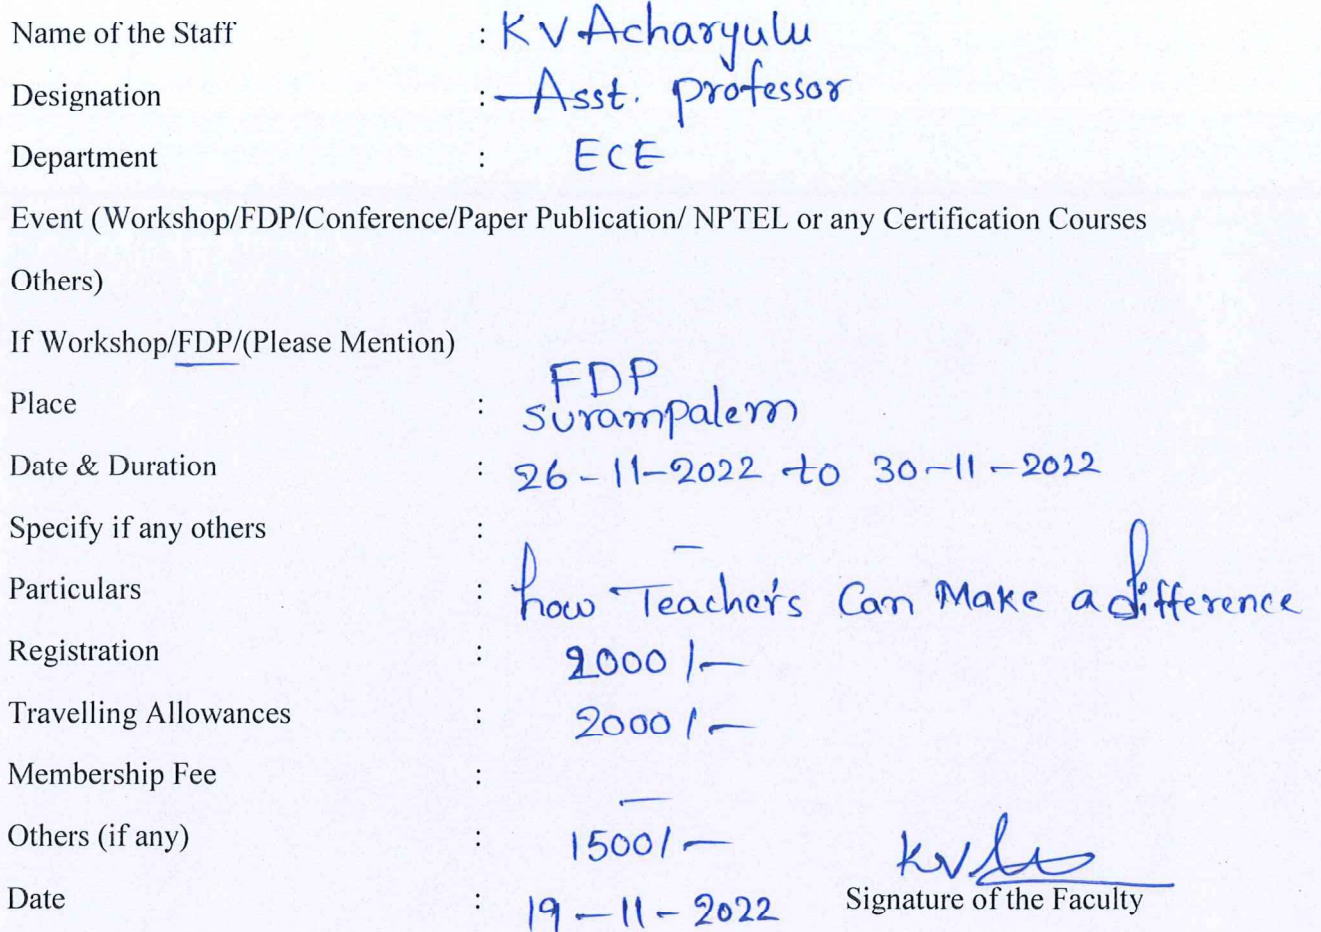 Name of the Staff : K V Acharyulu
Designation : Asst. professor
Department : ECE
Event (Workshop/FDP/Conference/Paper Publication/ NPTEL or any Certification Courses
Others)
If Workshop/FDP/(Please Mention) FDP
Place : Surampalem
Date & Duration : 26-11-2022 to 30-11-2022
Specify if any others : —
Particulars : how Teacher's Can Make a difference
Registration : 2000/-
Travelling Allowances : 2000/-
Membership Fee : —
Others (if any) : 1500/-
Date : 19-11-2022
Signature of the Faculty